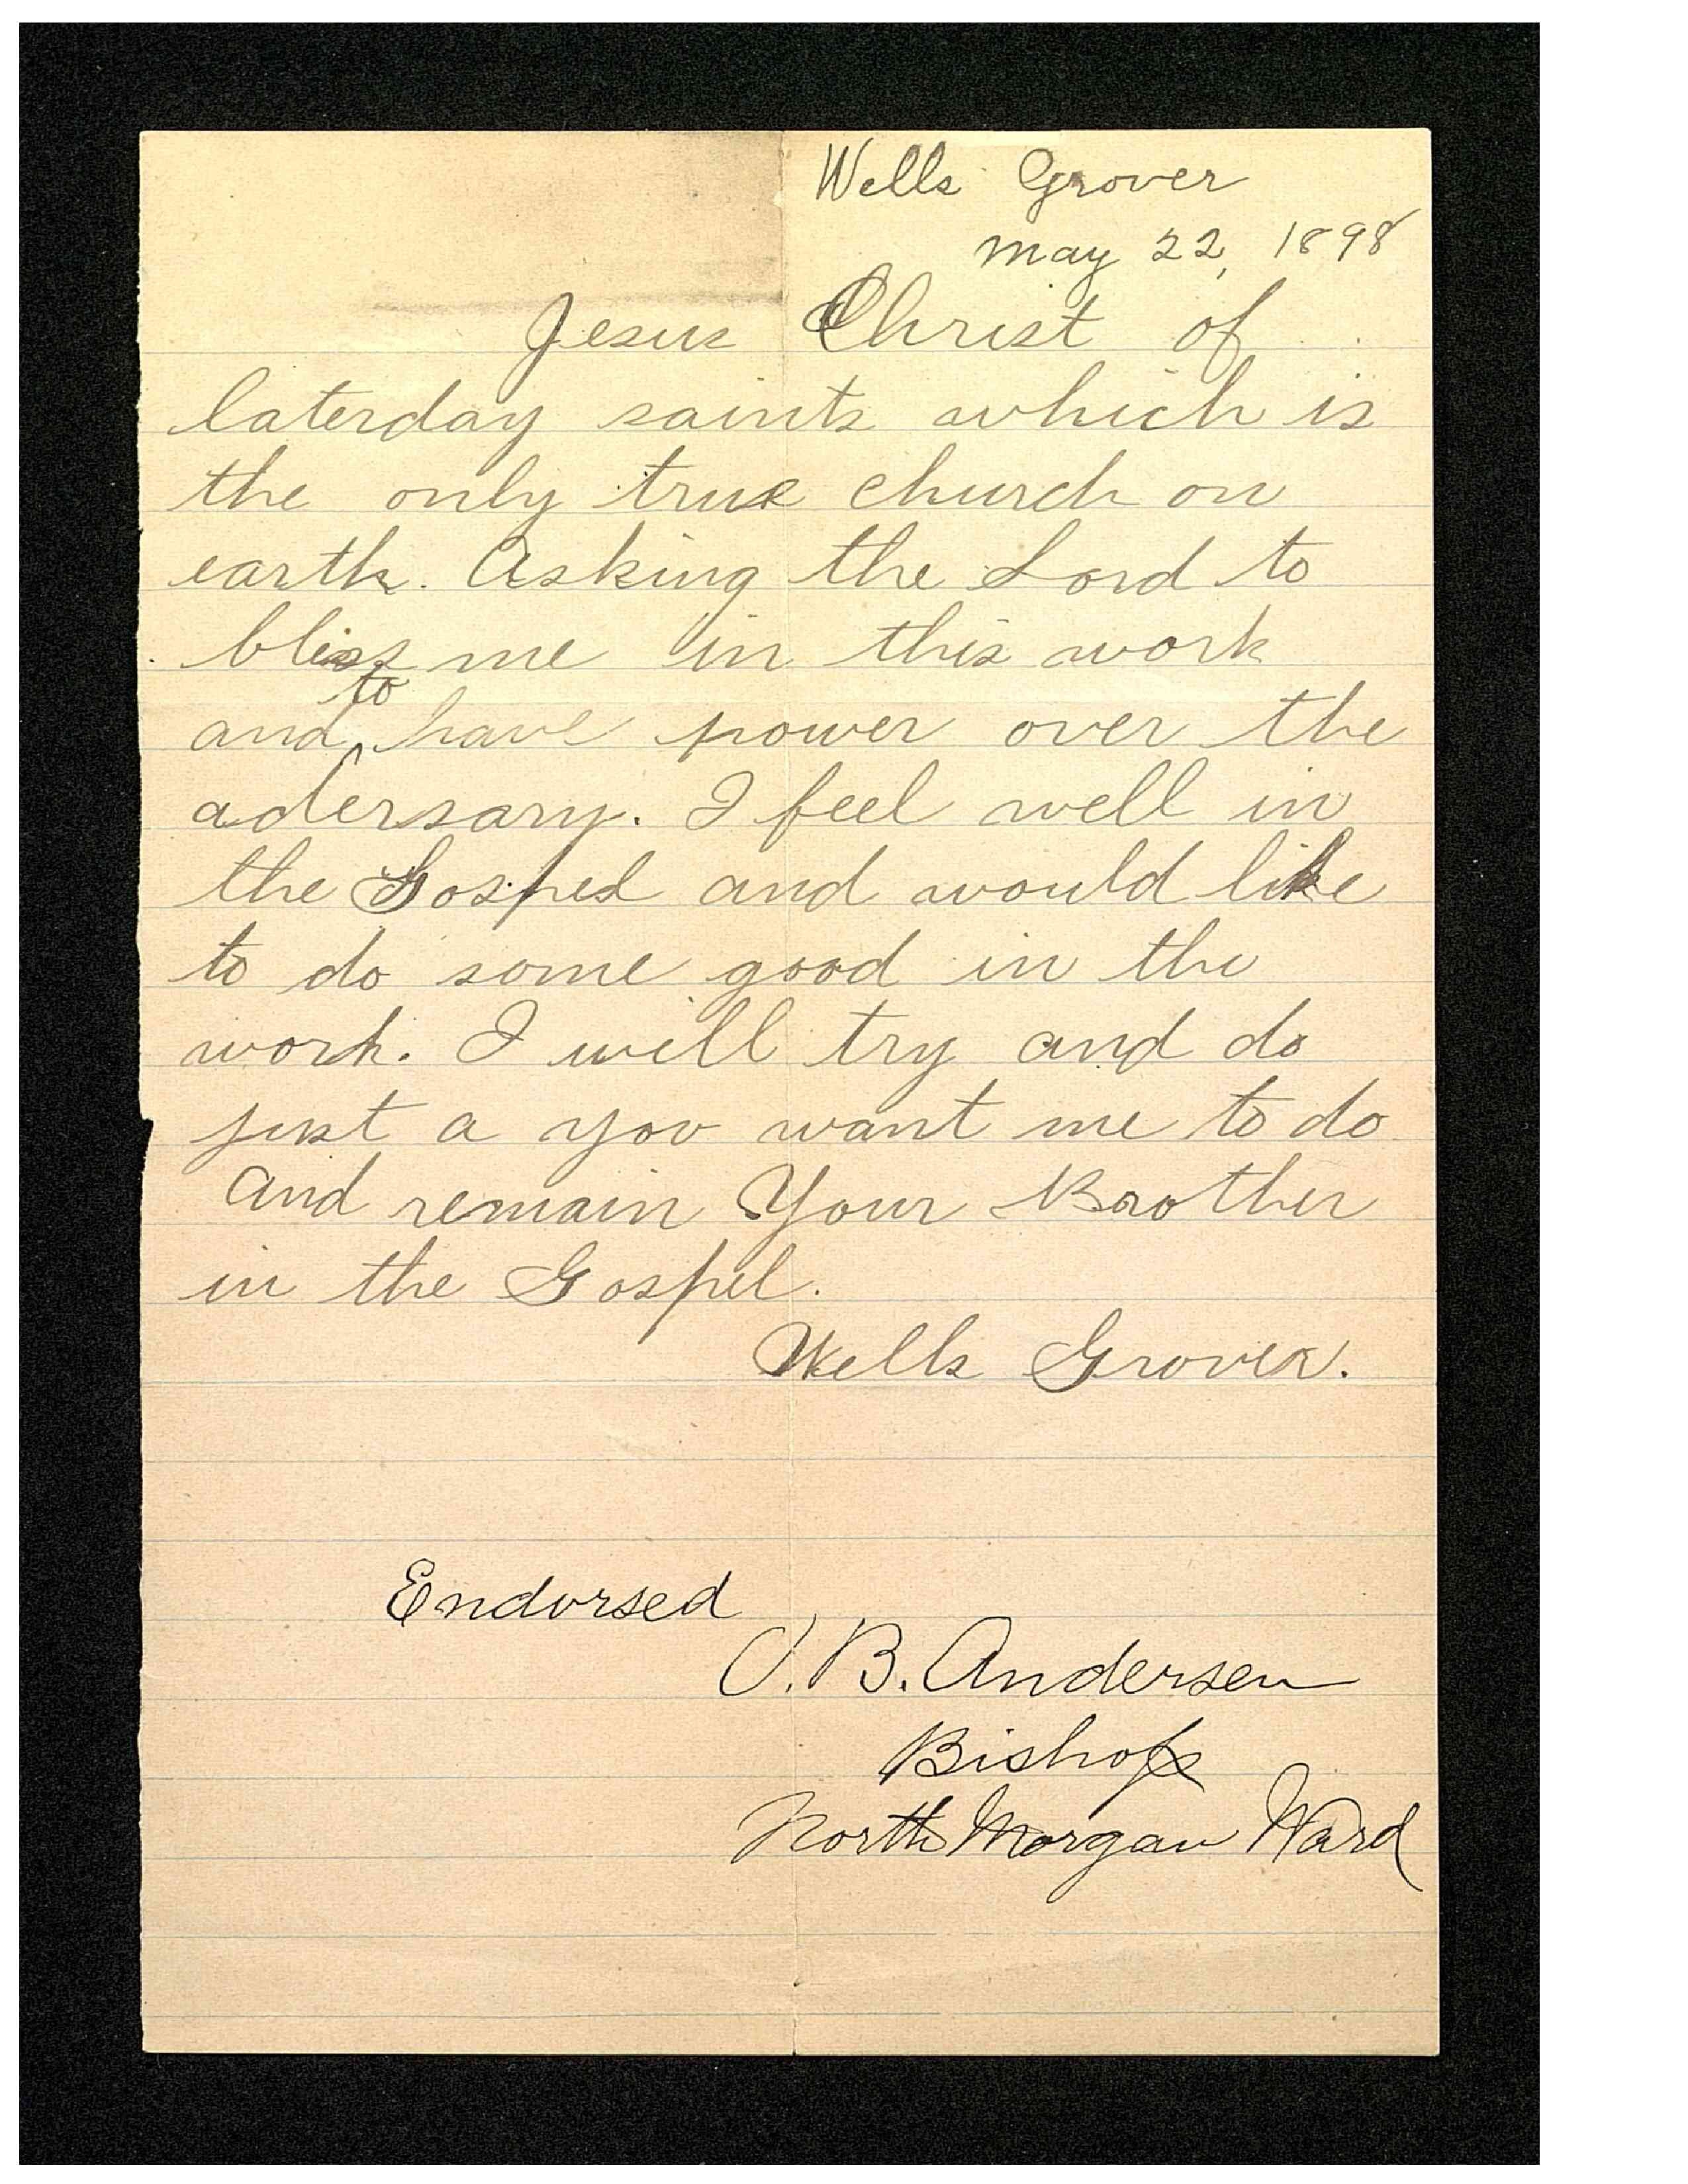 Wells Grover
May 22, 1898
Jesus Christ of
laterday saints which is
the only true church on
earth. Asking the Lord to
bless me in this work
to
and have power over the
adersary. I feel well in
the Gospel and would like
to do some good in the
work. I will try and do
just a you want me to do
and remain Your Brother
in the Gospel.
Wells Grover.
Endorsed
O. B. Andersen
Bishop
North Morgan Ward